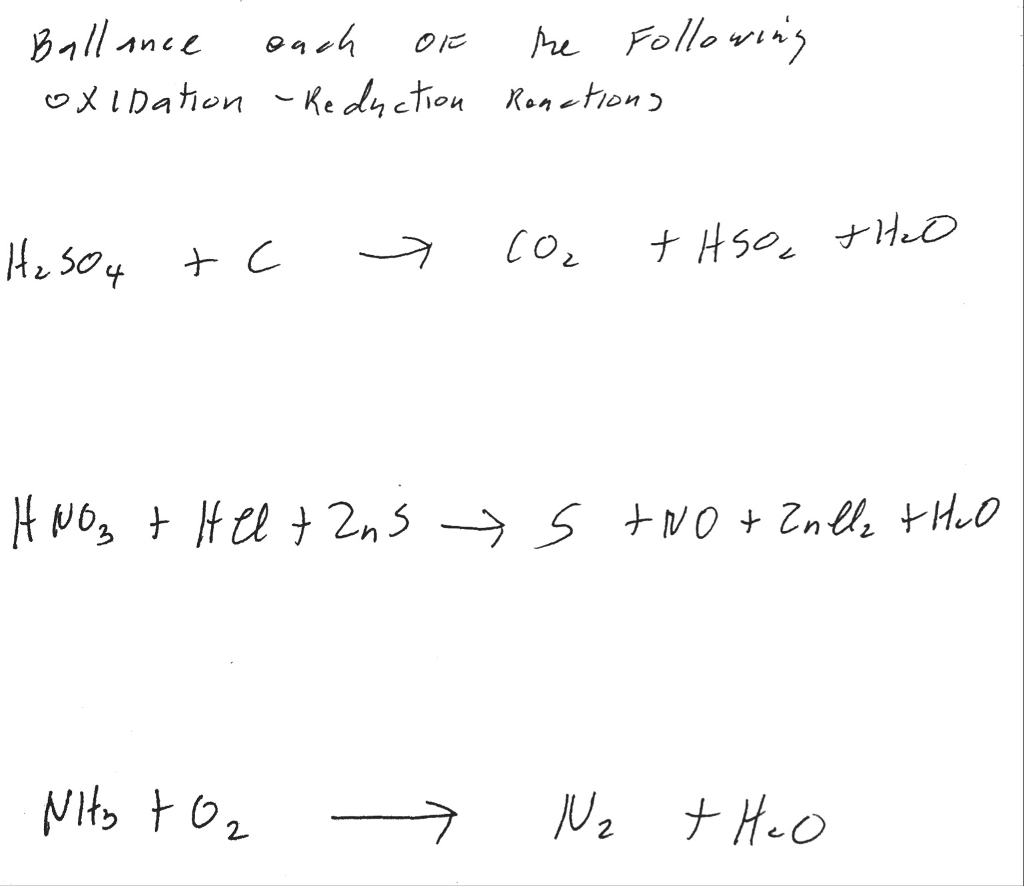 Ballance each OF the Following
OXIDation - Reduction Reactions
H₂SO₄ + C → CO₂ + HSO₂ + H₂O
HNO₃ + HCl + ZnS → S + NO + ZnCl₂ + H₂O
NH₃ + O₂ → N₂ + H₂O